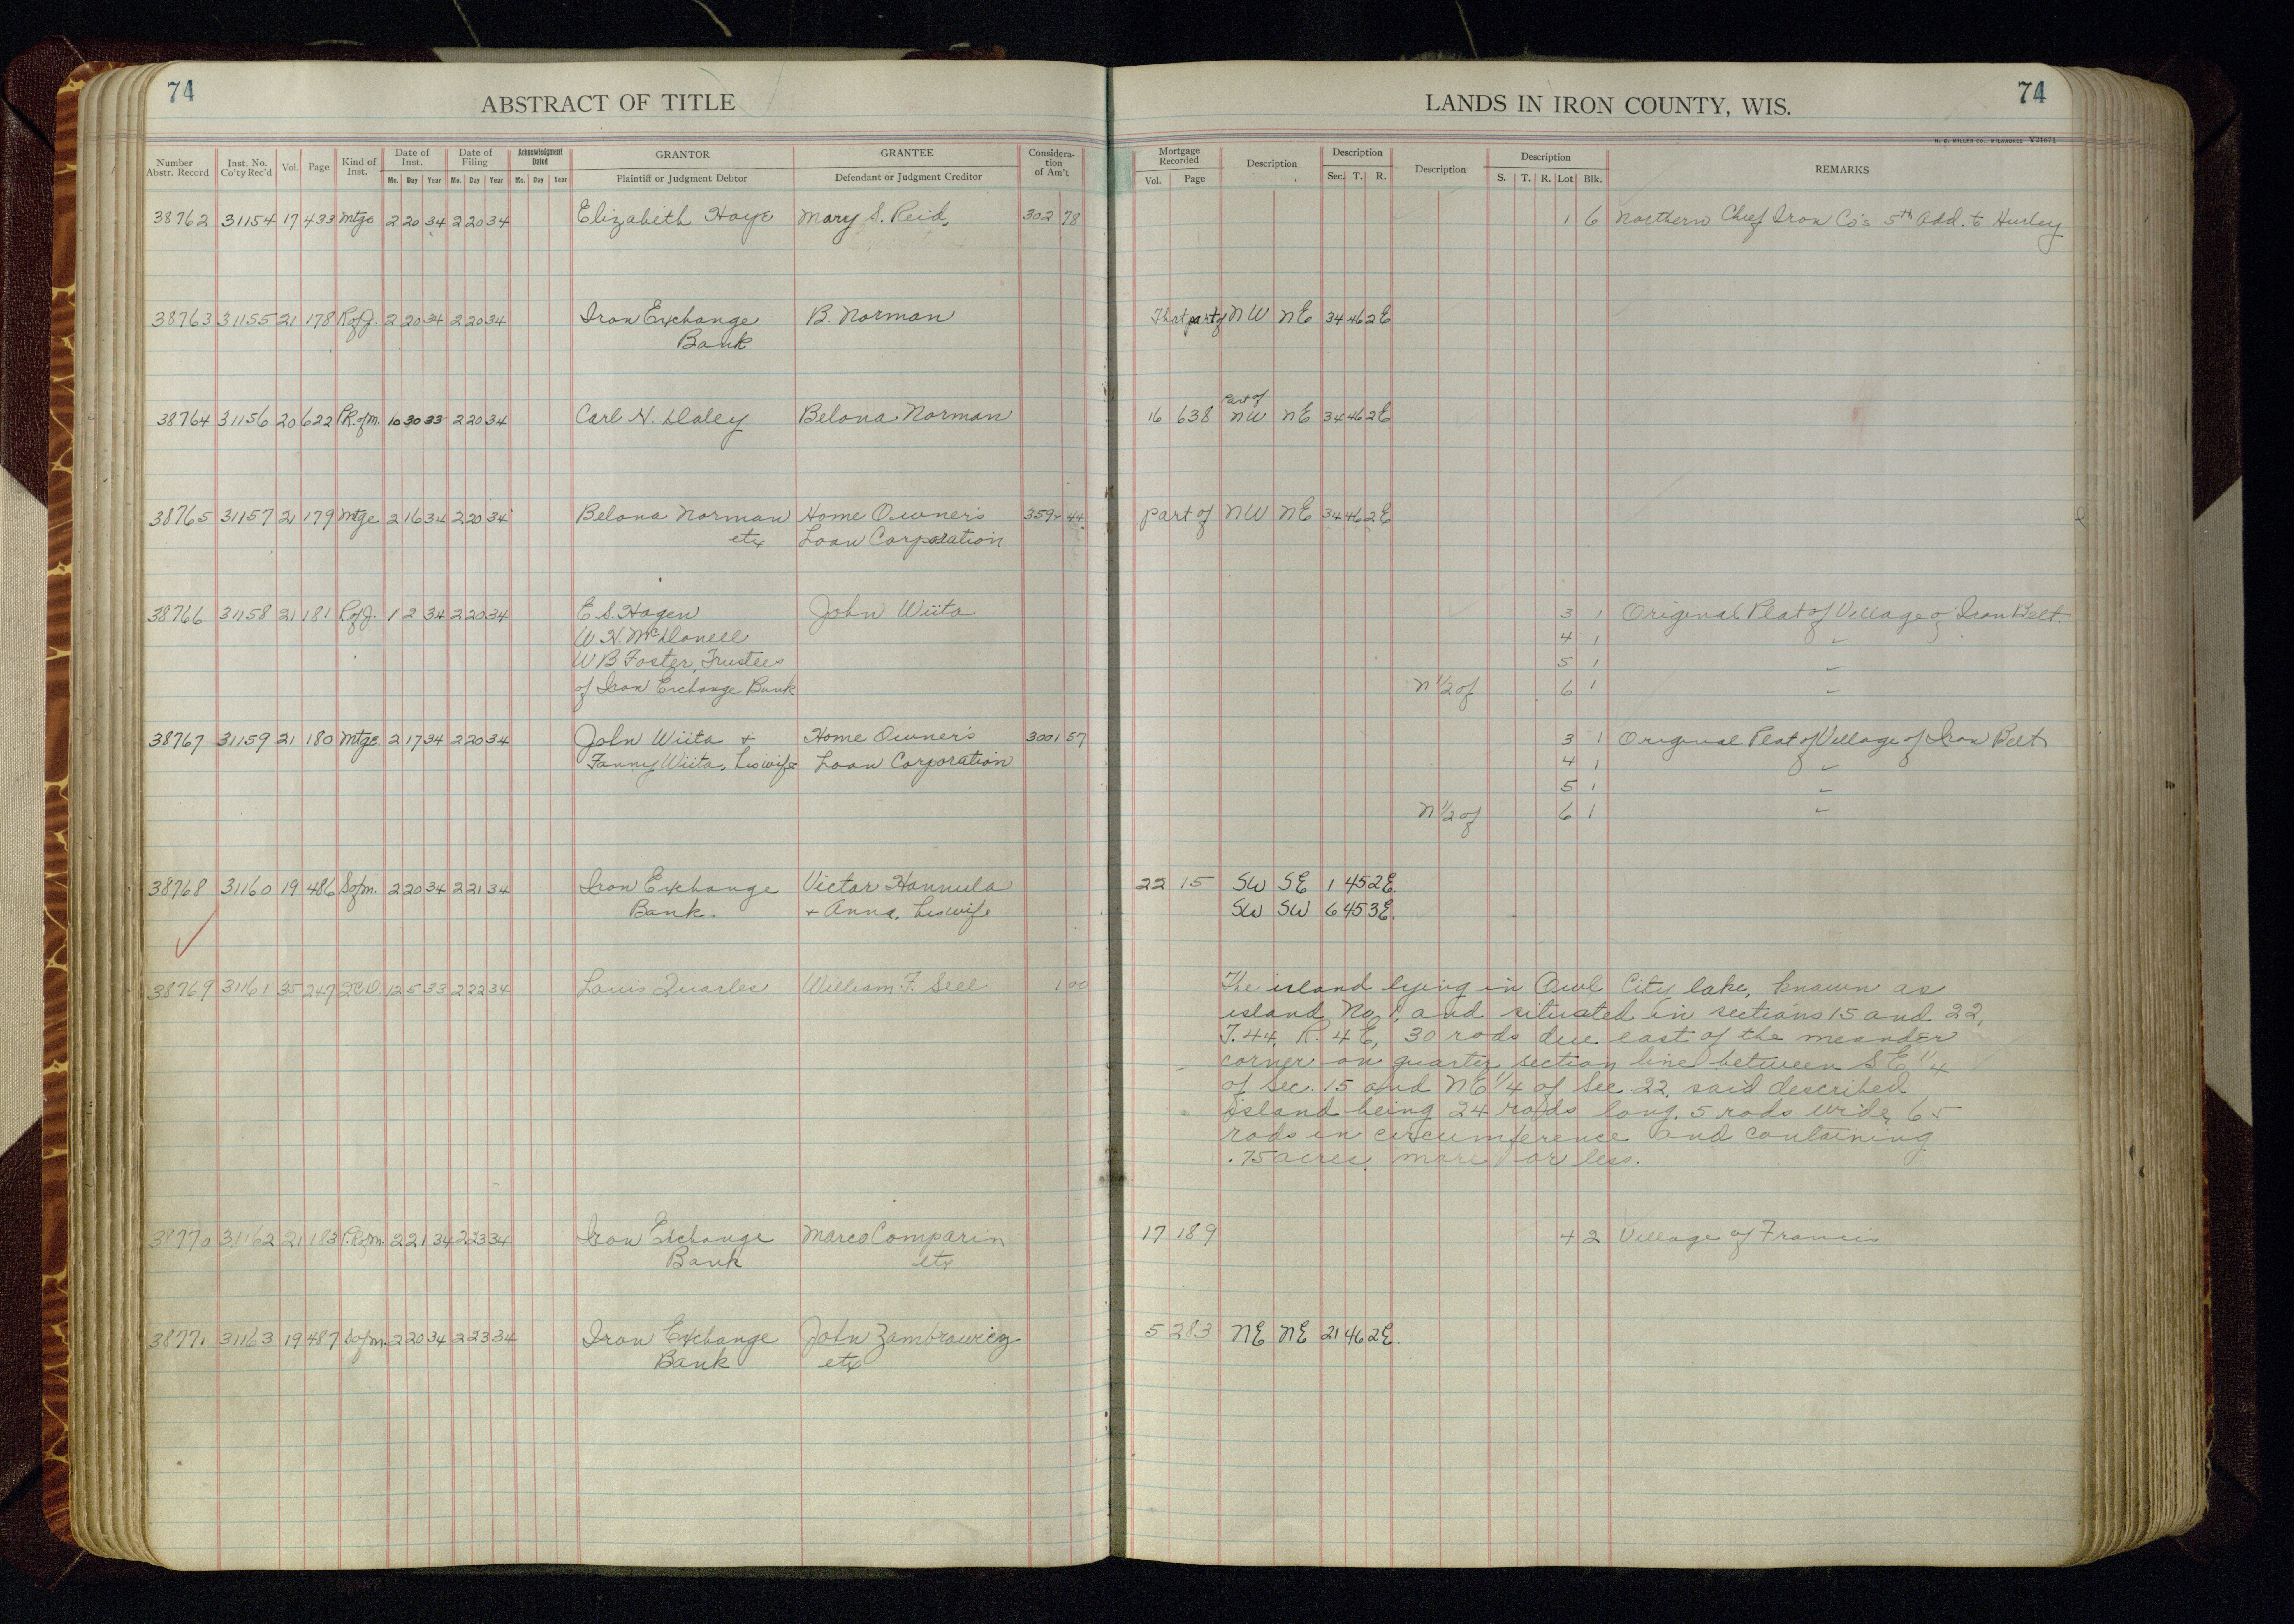 74
ABSTRACT OF TITLE
Number Abstr. Record Inst. No. Co'ty Rec'd Vol. Page Kind of Inst. Date of Inst. Date of Filing Acknowledgment Dated GRANTOR GRANTEE Consideration of Am't
Mo. Day Year Mo. Day Year Mo. Day Year Plaintiff or Judgment Debtor Defendant or Judgment Creditor
38762 31154 17 433 Mtge 2 20 34 2 20 34 Elizabeth Hoye Mary S. Reid, 302 78
38763 31155 21 178 RofJ. 2 20 34 2 20 34 Iron Exchange B. Norman
Bank
38764 31156 20 622 P.R.ofm. 10 30 33 2 20 34 Carl N. Daley Belona Norman
38765 31157 21 179 Mtge 2 16 34 2 20 34 Belona Norman Home Owner's 44
etx Loan Corporation
38766 31158 21 181 RofJ. 1 2 34 2 20 34 E.S. Hagen John Wiita
W.H. McDonell
W B Foster, Trustees
of Iron Exchange Bank
38767 31159 21 180 Mtge. 2 17 34 2 20 34 John Wiita + Home Owner's 3001 57
Fanny Wiita, his wife Loan Corporation
38768 31160 19 486 Sofm. 2 20 34 2 21 34 Iron Exchange Victor Hannula
Bank. + Anna, his wife
38769 31161 35 247 QCD. 12 5 33 2 22 34 Louis Quarles William F. Seel 1 00
38770 31162 21 183 P.Rofm. 2 21 34 2 23 34 Iron Exchange Marco Comparin
Bank etx
38771 31163 19 487 Sofm. 2 20 34 2 23 34 Iron Exchange John Zambrowicz
Bank etx
LANDS IN IRON COUNTY, WIS.
74
H. C. MILLER CO., MILWAUKEE V31671
Mortgage Recorded Description Description Description Description REMARKS
Vol. Page Sec. T. R. S. T. R. Lot Blk.
1 6 Northern Chief Iron Co's 5th Add. to Hurley
That part of NW NE 34 46 2E
Part of
16 638 NW NE 34 46 2E
Part of NW NE 34 46 2E
3 1 Original Plat of Village of Iron Belt
4 1 "
5 1 "
N 1/2 of 6 1 "
3 1 Original Plat of Village of Iron Belt
4 1 "
5 1 "
N 1/2 of 6 1 "
22 15 SW SE 1 45 2E.
SW SW 6 45 3E.
The island lying in Owl City lake, known as
island No. 1, and situated in sections 15 and 22,
T. 44, R. 4 E, 30 rods due east of the meander
corner on quarter section line between SE 1/4
of Sec. 15 and NE 1/4 of Sec. 22, said described
island being 24 rods long, 5 rods wide, 65
rods in circumference and containing
.75 acres more or less.
17 189 4 2 Village of Francis
5 283 NE NE 21 46 2E.